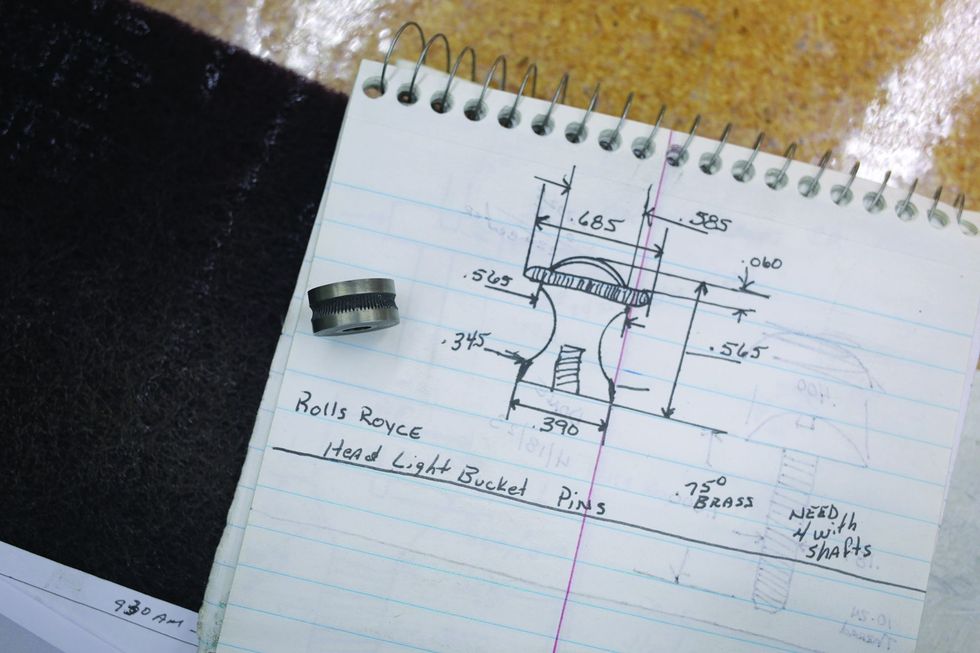 .685
.585
.060
.565
.345
.565
.390
Rolls ROYCE
Head Light Bucket Pins
.750
BRASS
NEED
4 with
shafts
930 AM -
.400
4/18/25
10-24
Thread